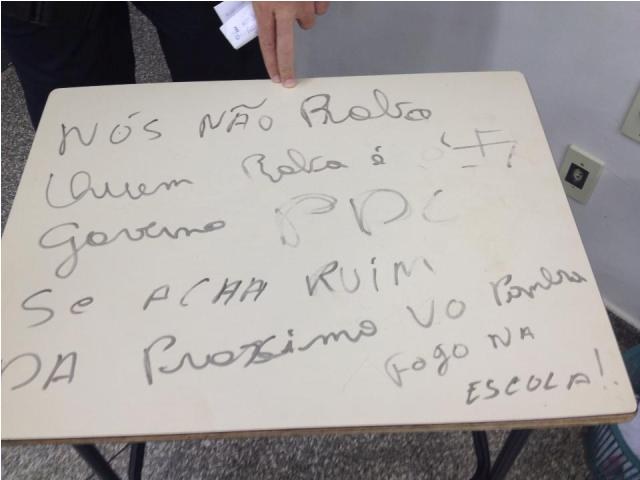 NÓS NÃO Roba
Quem Roba é
Governo PDC
Se ACHA RUIM
DA Proxsimo VO Pombra
FOGO NA
ESCOLA!!